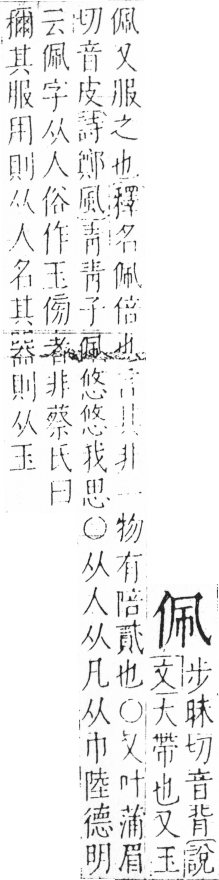 佩步昧切音背說
文大帶也又玉
佩又服之也釋名佩倍也言其非一物有陪貳也○又叶蒲眉
切音皮詩鄭風青青子佩悠悠我思○从人从凡从巾陸德明
云佩字从人俗作玉傍者非蔡氏曰
禰其服用則从人名其器則从玉